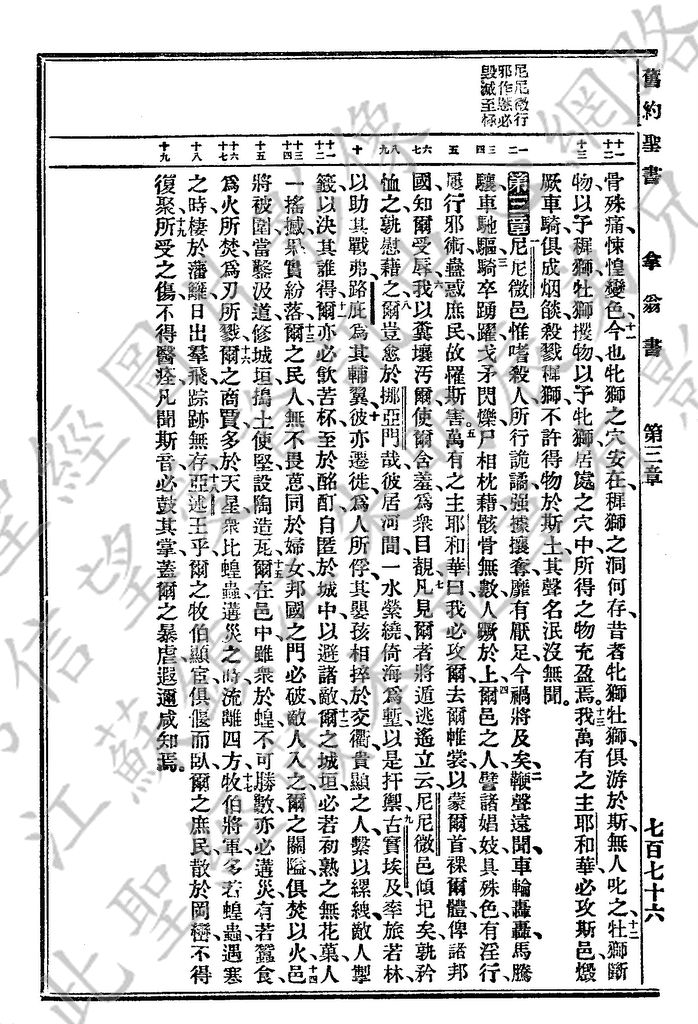 舊約聖書 拿翁書 第三章 七百七十六
骨殊痛悚惶變色今也牝獅之穴安在穉獅之洞何存昔者牝獅牡獅俱游於斯無人叱之牡獅斷
物以予穉獅牡獅攫物以予牝獅居處之穴中所得之物充盈焉我萬有之主耶和華必攻斯邑燬
厥車騎俱成烟燄殺戮穉獅不許得物於斯土其聲名泯沒無聞
第三章尼尼微邑惟嗜殺人所行詭譎强據攘奪靡有厭足今禍將及矣鞭聲遠聞車輪轟轟馬騰
驤車馳驅騎卒踴躍戈矛閃爍尸相枕藉骸骨無數人蹶於上爾邑之人譬諸娼妓具殊色有淫行
屢行邪術蠱惑庶民故罹斯害萬有之主耶和華曰我必攻爾去爾帷裳以蒙爾首裸爾體俾諸邦
國知爾受辱我以糞壤汚爾使爾含羞爲衆目覩凡見爾者將遁逃遙立云尼尼微邑傾圯矣孰矜
恤之孰慰藉之爾豈愈於挪亞門哉彼居河間一水縈繞倚海爲塹以是扞禦古實埃及率旅若林
以助其戰弗路庇爲其輔翼彼亦遷徙爲人所俘其嬰孩相捽於交衢貴顯之人繫以縲絏敵人掣
籤以決其誰得爾亦必飮苦杯至於酩酊自匿於城中以避諸敵爾之城垣必若初熟之無花菓人
一搖撼果實紛落爾之民人無不畏葸同於婦女邦國之門必破敵人入之爾之關隘俱焚以火邑
將被圍當鑿汲道修城垣搗土使堅設陶造瓦爾在邑中雖衆於蝗不可勝數亦必遘災有若蠶食
爲火所焚爲刃所戮爾之商賈多於天星衆比蝗蟲遘災之時流離四方牧伯將軍多若蝗蟲遇寒
之時棲於藩籬日出羣飛踪跡無存亞述王乎爾之牧伯顯宦俱偃而臥爾之庶民散於岡巒不得
復聚所受之傷不得醫痊凡聞斯音必鼓其掌蓋爾之暴虐遐邇咸知焉
十一
十二
十三
一
二
三
四
五
六
七
八
九
十
十一
十二
十三
十四
十五
十六
十七
十八
十九
尼尼微行
邪作慝必
毀滅至極